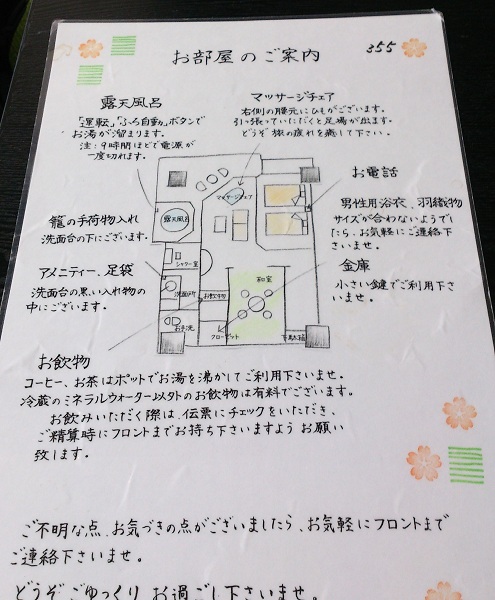 お部屋のご案内
355
露天風呂
「運転」「ふろ自動」ボタンで
お湯が溜まります。
注:9時間ほどで電源が
一度切れます。
マッサージチェア
右側の腰元にひもがございます。
引っ張っていただくと足場が出ます。
どうぞ旅の疲れを癒して下さい。
お電話
男性用浴衣、羽織物
サイズが合わないようでし
たら、お気軽にご連絡下
さいませ。
籠の手荷物入れ
洗面台の下にございます。
アメニティー、足袋
洗面台の黒い入れ物の
中にございます。
金庫
小さい鍵でご利用下さ
いませ。
マッサージチェア
露天風呂
シャワー室
洗面所
お飲物
和室
お手洗
クローゼット
下駄箱
お飲物
コーヒー、お茶はポットでお湯を沸かしてご利用下さいませ。
冷蔵のミネラルウォーター以外のお飲物は有料でございます。
お飲みいただく際は、伝票にチェックをいただき、
ご精算時にフロントまでお持ち下さいますようお願い
致します。
ご不明な点、お気づきの点がございましたら、お気軽にフロントまで
ご連絡下さいませ。
どうぞごゆっくりお過ごし下さいませ。